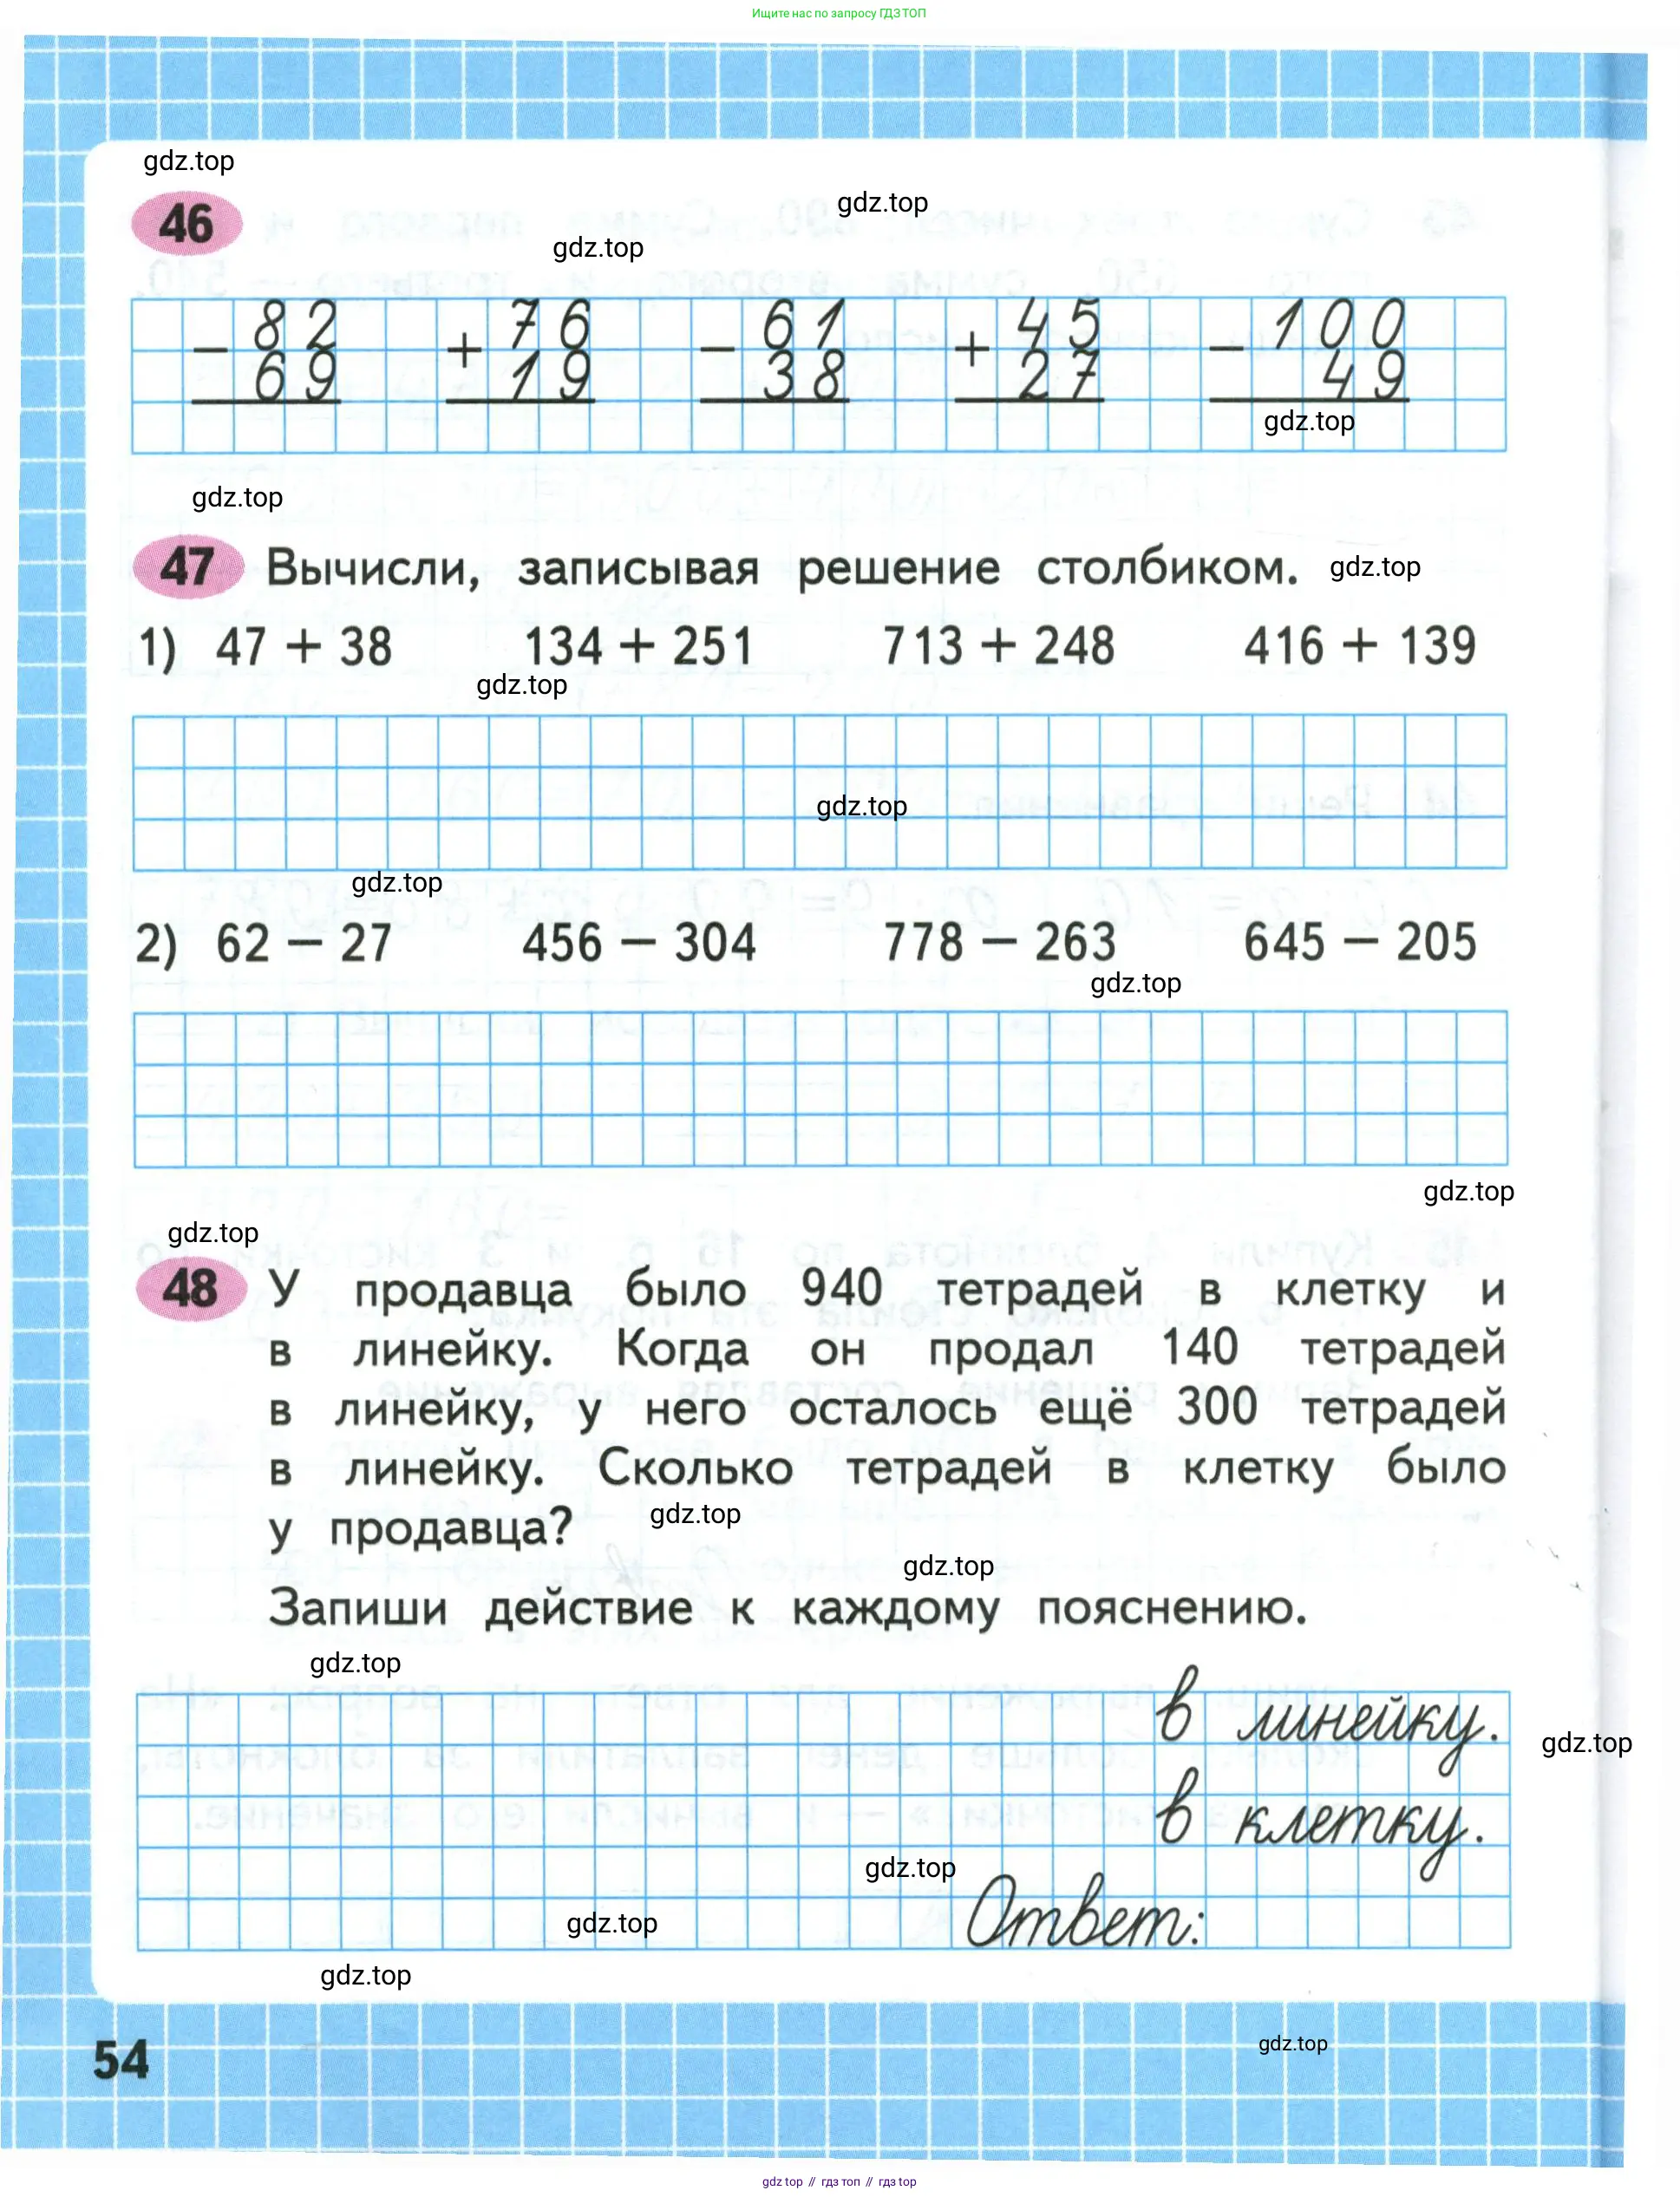 Ищите нас по запросу ГДЗ ТОП
gdz.top
gdz.top
46
gdz.top
− 82 + 76 − 61 + 45 − 100
69 19 38 27 49
gdz.top
gdz.top
47 Вычисли, записывая решение столбиком. gdz.top
1) 47 + 38 134 + 251 713 + 248 416 + 139
gdz.top
gdz.top
gdz.top
2) 62 − 27 456 − 304 778 − 263 645 − 205
gdz.top
gdz.top
gdz.top
48 У продавца было 940 тетрадей в клетку и
в линейку. Когда он продал 140 тетрадей
в линейку, у него осталось ещё 300 тетрадей
в линейку. Сколько тетрадей в клетку было
у продавца? gdz.top
gdz.top
Запиши действие к каждому пояснению.
gdz.top
в линейку.
gdz.top
в клетку.
gdz.top
Ответ:
gdz.top
gdz.top
54
gdz.top
gdz top // гдз топ // gdz top